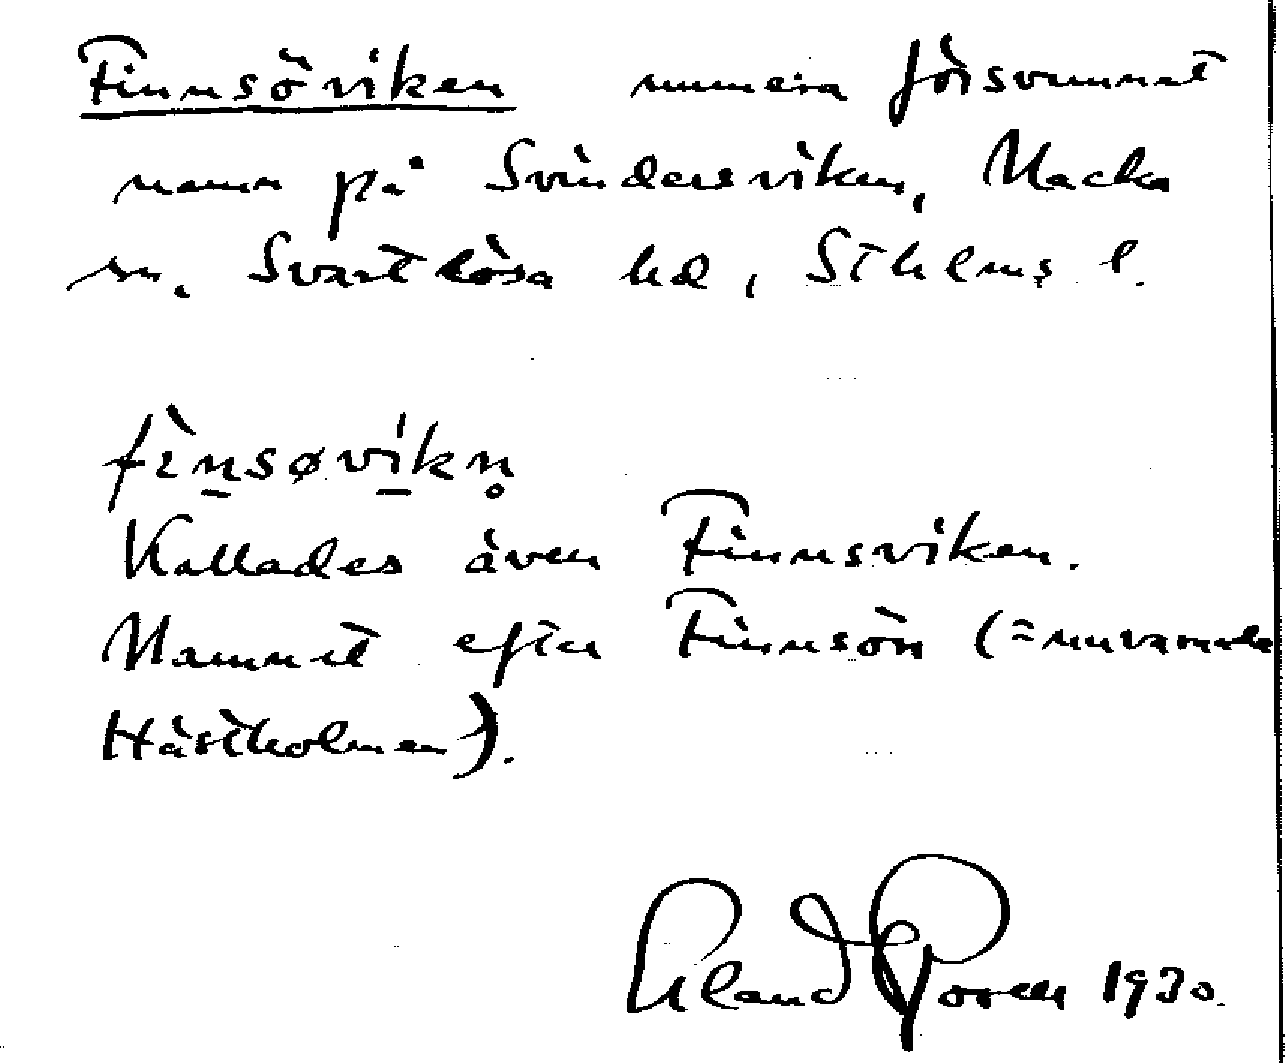 Finnsöviken numera försvunnet
namn på Svindersviken, Nacka
sn, Svartlösa hd, Sthlms l.
fìn̠søvi̠kn̥
Kallades även Finnsviken.
Namnet efter Finnsön (= nuvarande
Hästholmen).
1930.